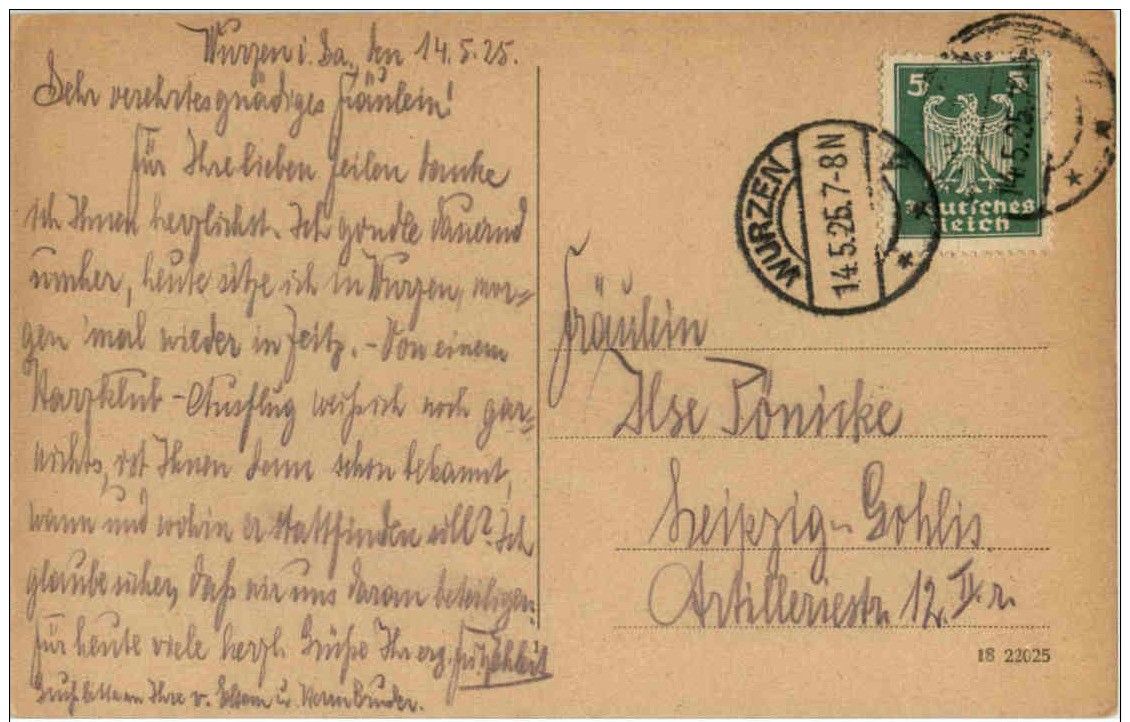 Wurzen i. Sa., den 14.5.25.
Sehr verehrtes gnädiges Fräulein!
Für Ihre lieben Zeilen danke
ich Ihnen herzlichst. Ich gondle dauernd
umher, heute sitze ich in Wurzen, mor=
gen 'mal wieder in Zeitz. - Von einem
Harzklub-Ausflug weiß ich noch gar=
nichts, ist Ihnen denn schon bekannt,
wann und wohin er stattfinden soll? Ich
glaube sicher, daß wir uns daran beteiligen.
Für heute viele herzl. Grüße Ihr erg.
Ihre v. Eltern u. Herrn Bruder.
5 5
Deutsches
Reich
WURZEN
14.5.25.7-8N
14.5.25.7-8N
Fräulein
Ilse Tönicke
Leipzig-Gohlis
Artilleriestr. 12 II. r.
18 22025